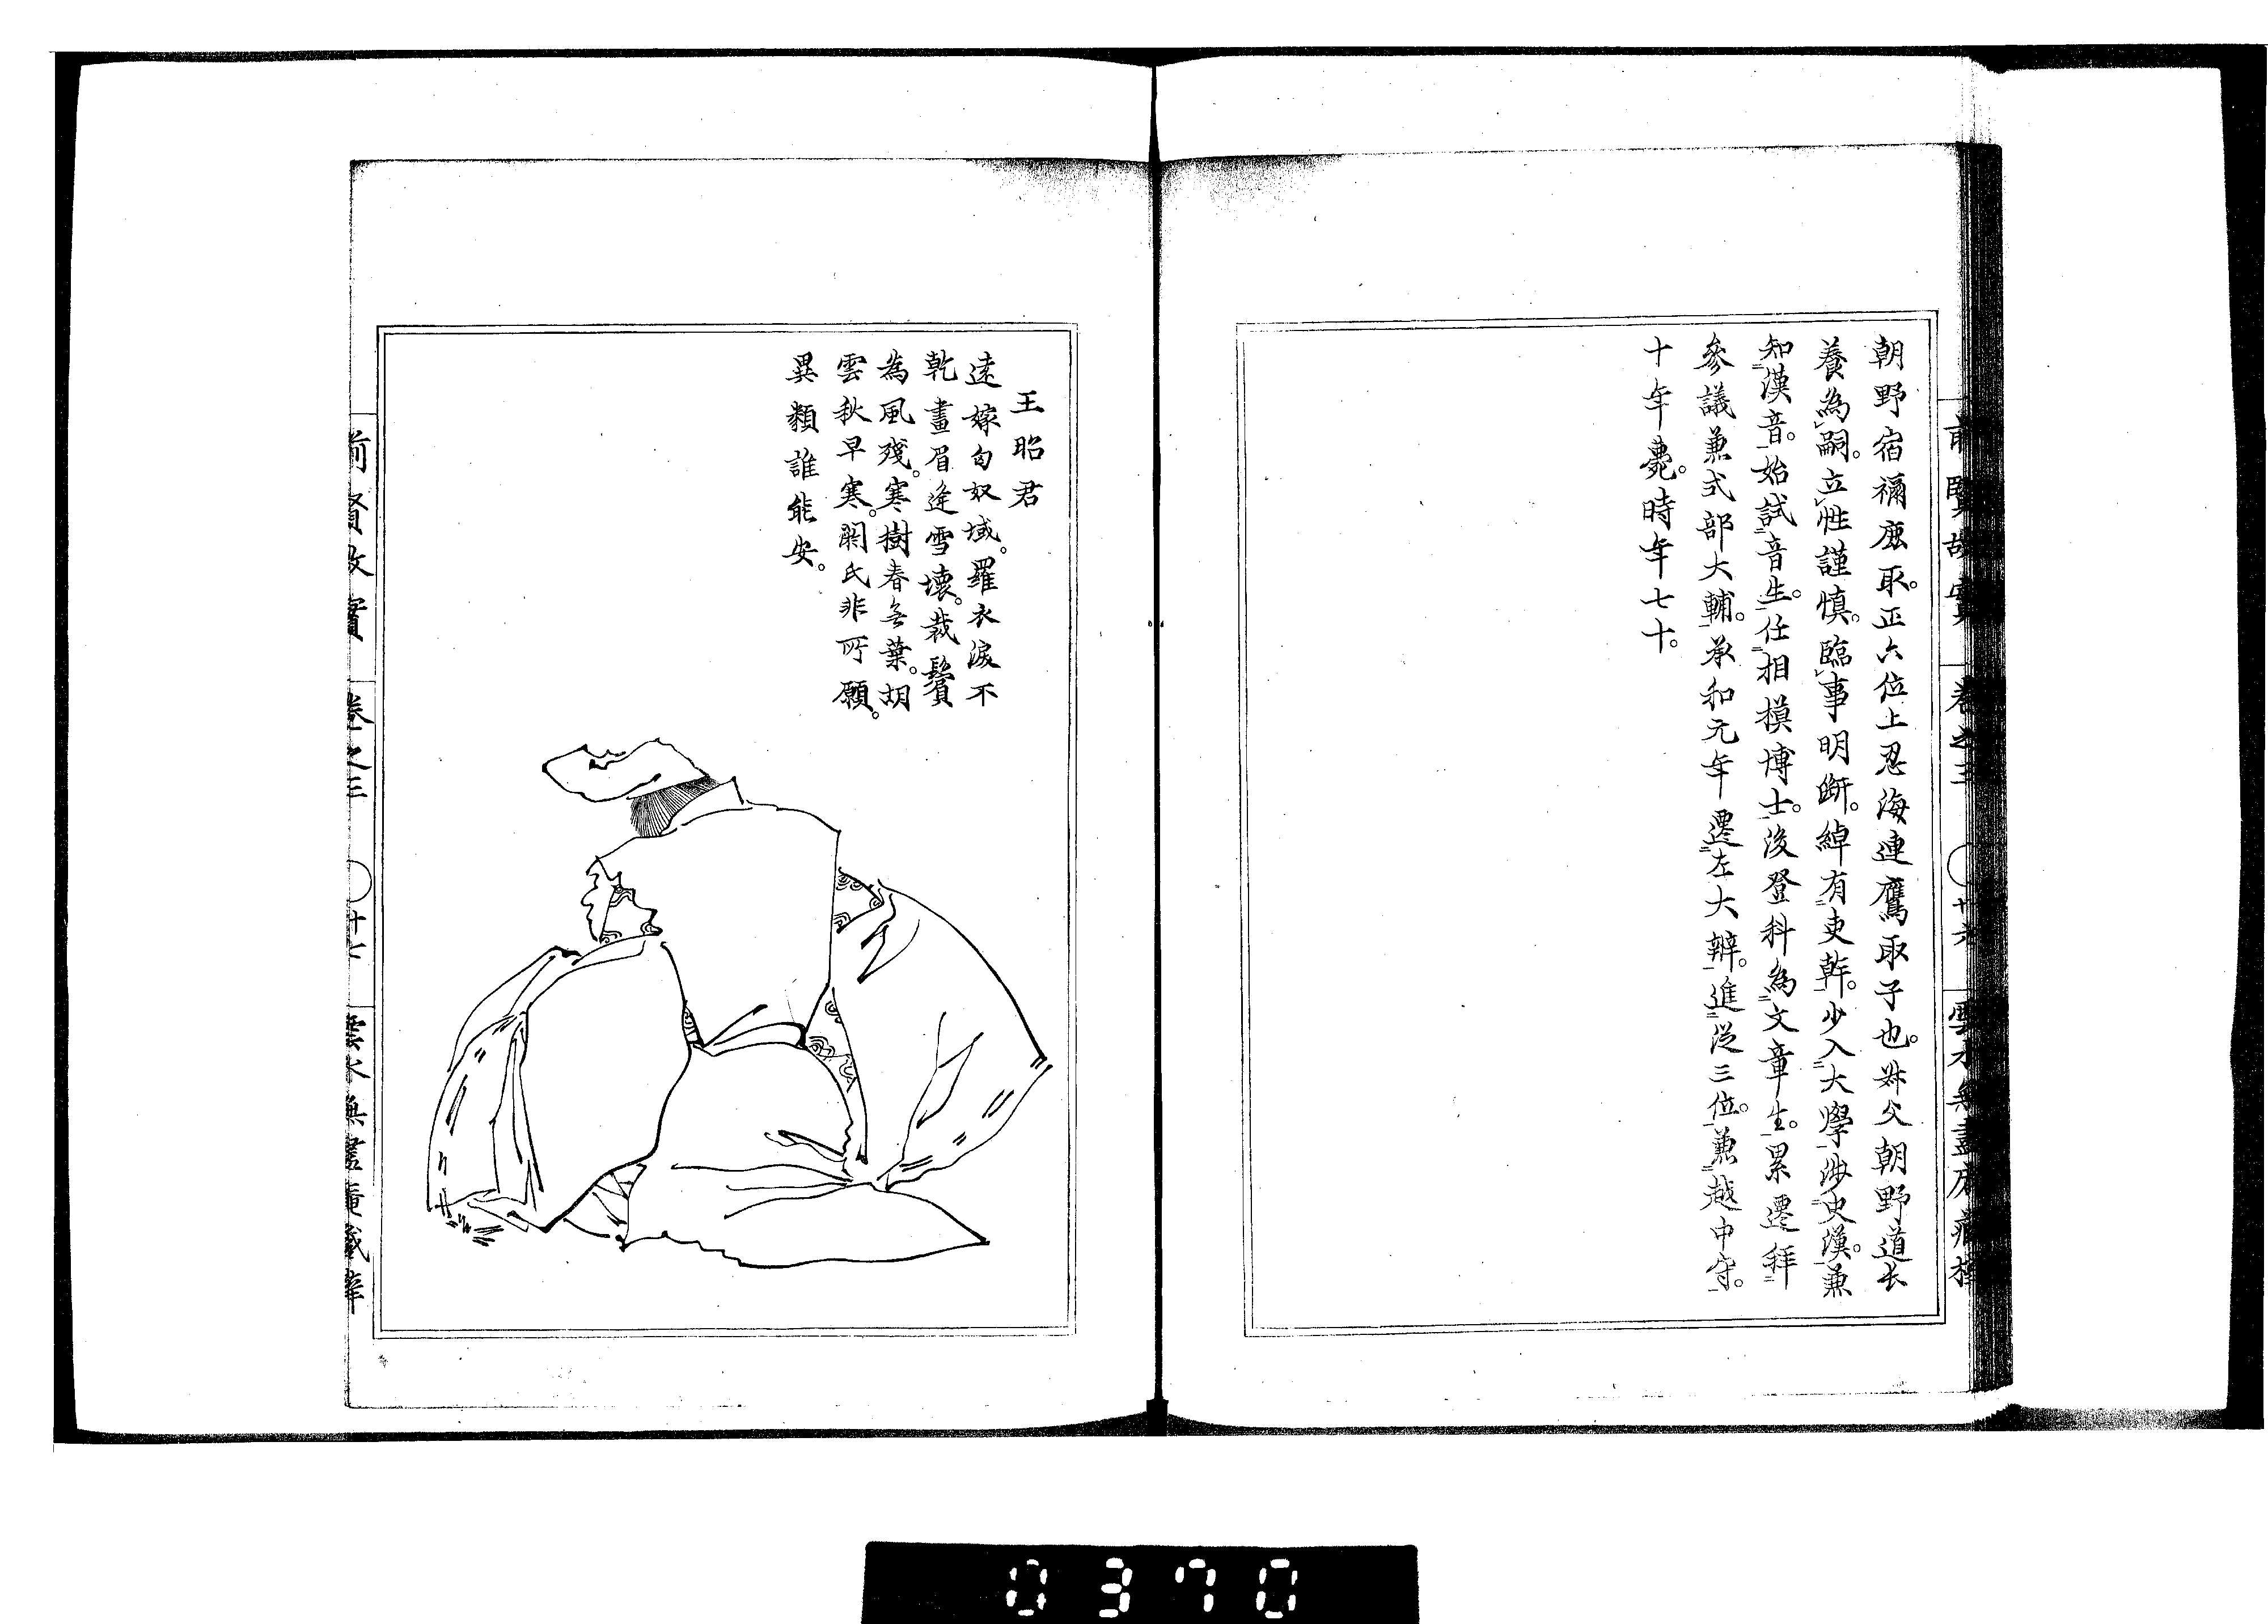 朝野宿禰鹿取。正六位上忍海連鷹取子也。叔父朝野道長
養為嗣。立性謹慎。臨事明斷。綽有吏幹。少入大學渉史漢。兼
知漢音。始試音生。任相模博士。後登科為文章生。累遷拜
參議兼式部大輔。承和元年遷左大辨。進從三位。兼越中守。
十年薨。時年七十。
前賢故實 卷之三 十六 雲水無盡庵藏梓
王昭君
遠嫁匈奴域。羅衣淚不
乾畫眉逢雪壞。裁鬢
為風殘。寒樹春無葉。胡
雲秋早寒。閼氏非所願。
異類誰能安。
前賢故實 卷之三 十七 雲水無盡庵藏梓
0370